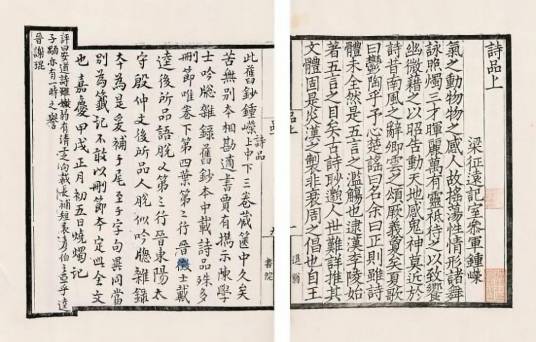 詩品上
梁征遠記室參軍鍾嶸
氣之動物物之感人故搖蕩性情形諸舞
詠照燭三才暉麗萬有靈祇待之以致饗
幽微籍之以昭告動天地感鬼神莫近於
詩昔南風之辭卿雲之頌厥義夐矣夏歌
曰鬱陶乎予心楚謠曰名余曰正則雖詩
體未全然是五言之濫觴也逮漢李陵始
著五言之目矣古詩眇邈人世難詳推其
文體固是炎漢之製非衰周之倡也自王
詩品
書院
此舊鈔鍾嶸上中下三卷藏篋中久矣
苦無別本相勘適書賈有攜示陳學
士吟牕雜錄舊鈔本中載詩品殊多
刪節唯卷下第四葉第三行晉徵士戴
逵後所品語脫又第三行晉東陽太
守殷仲文後所品人脫似吟牕雜錄
本為足爰補于尾至于字句異同當
別為籤記不敢以刪節本定此全文
也 嘉慶甲戌正月初五日燒燭記
評曰安道詩雖嫩弱有清工之句裁長補短袁彥伯之亞乎逵
子顒亦有一時之譽
晉謝琨